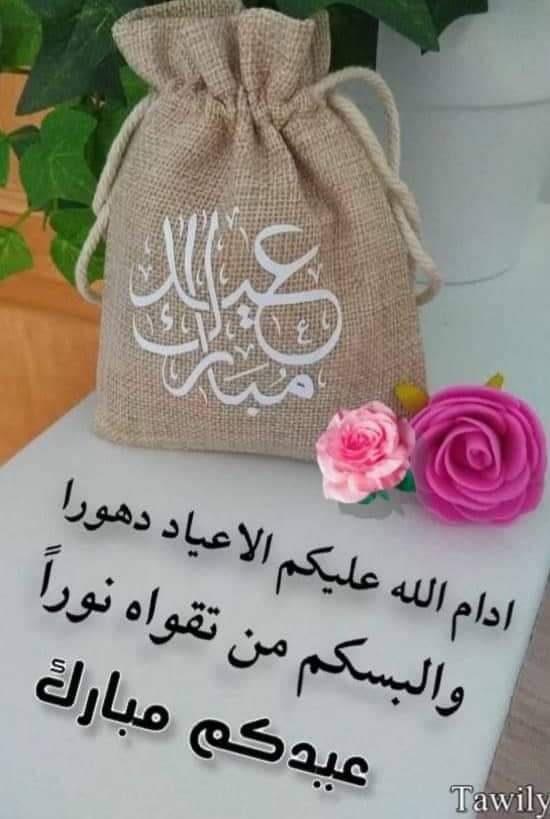 عيدكم
مبارك
ادام الله عليكم الاعياد دهورا
والبسكم من تقواه نوراً
عيدكم مبارك
Tawily